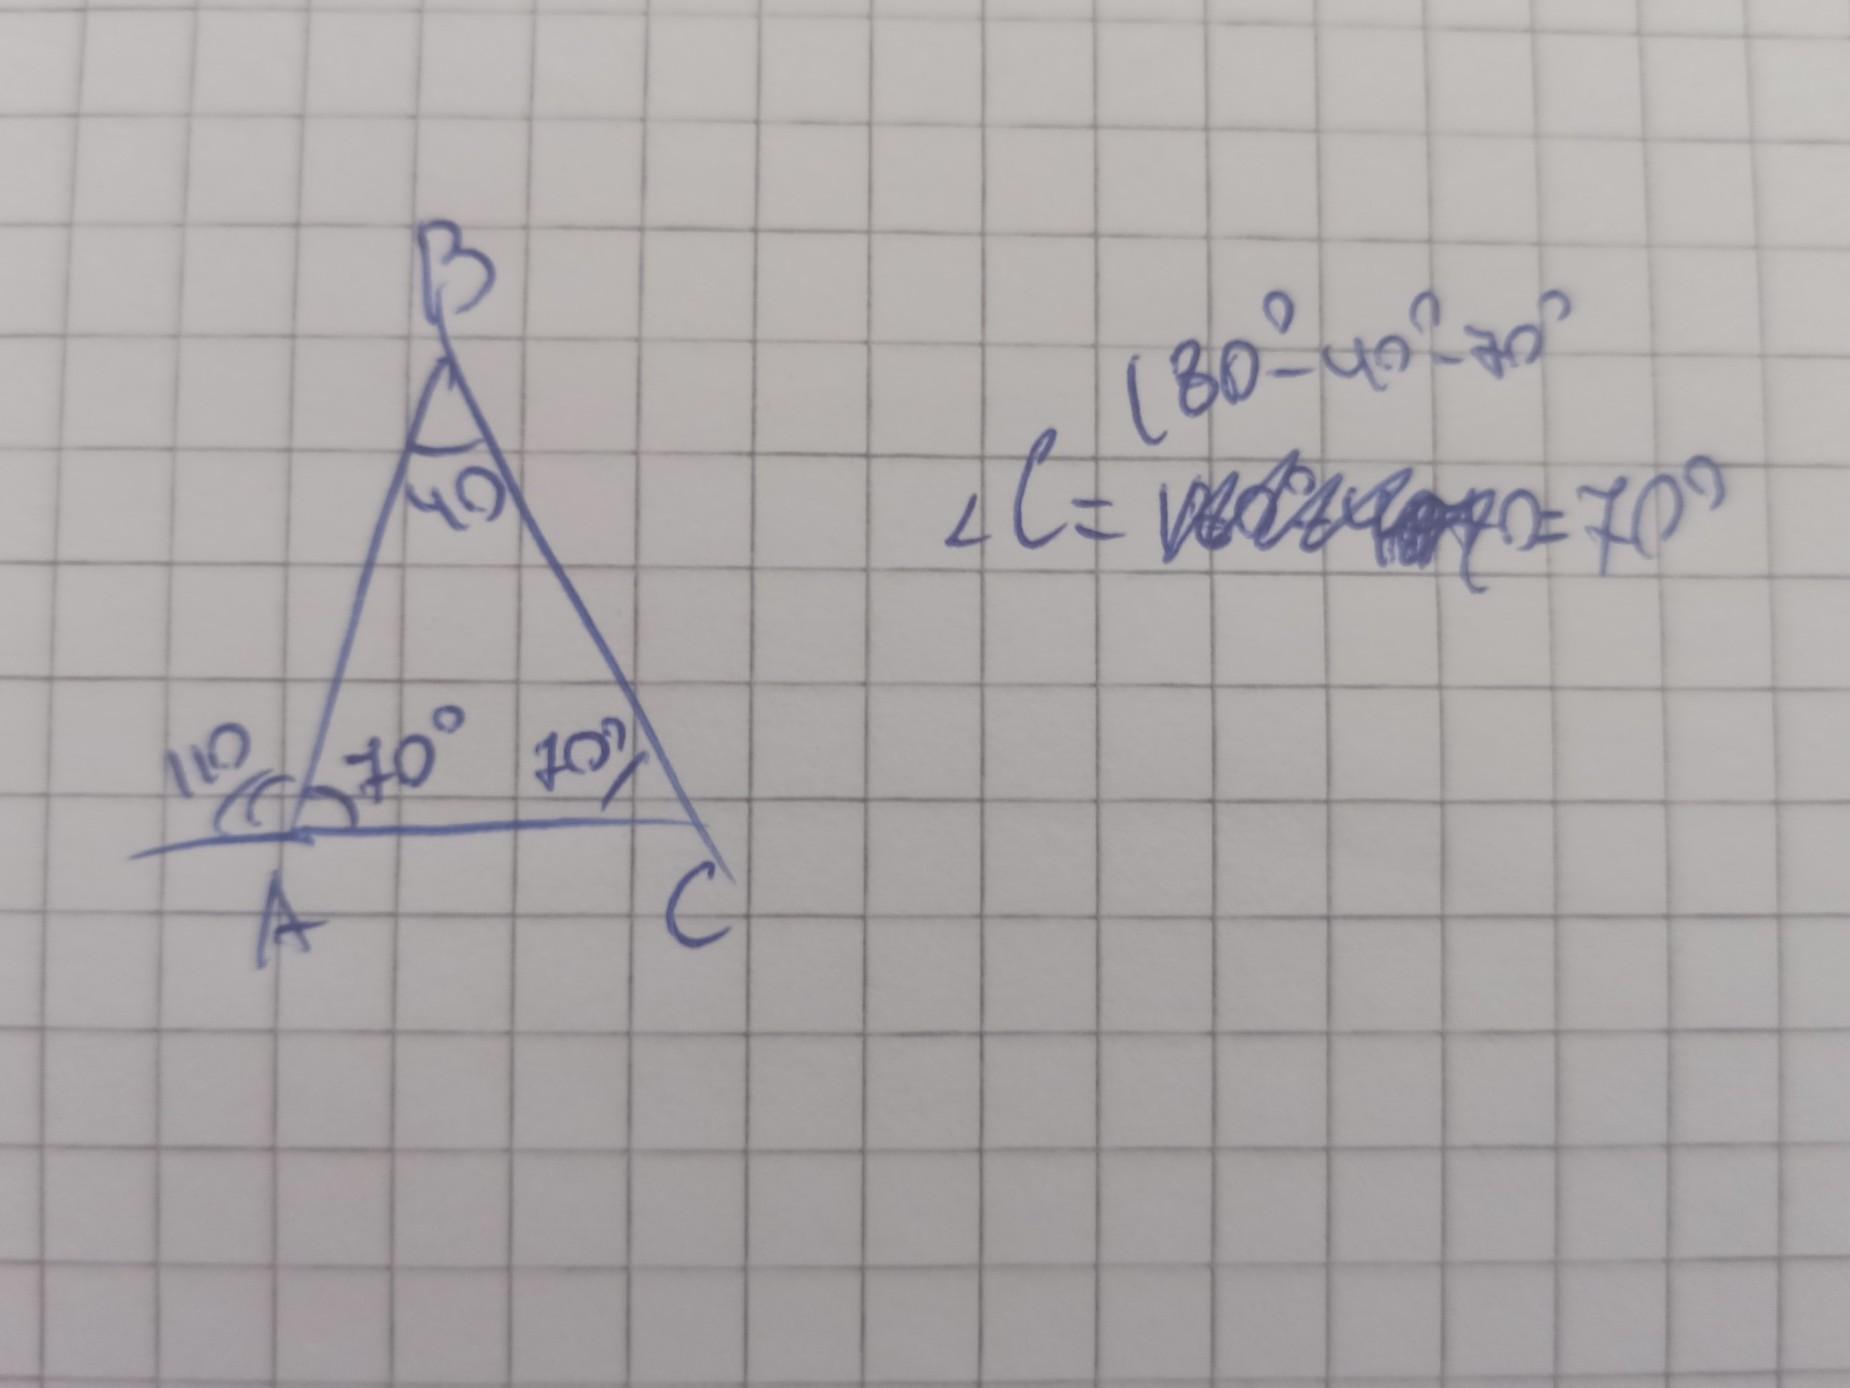 B
40
110
70°
70°
A
C
180°-40°-70°
∠C= =70°